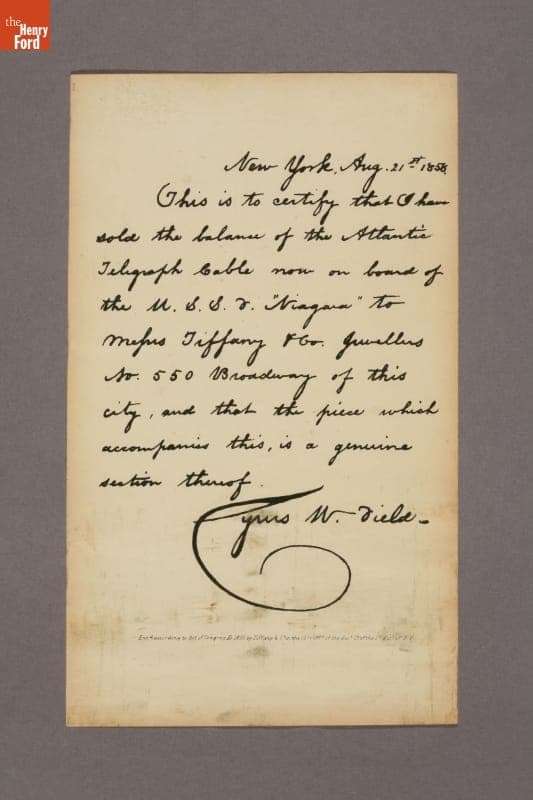 the
Henry
Ford
New York, Aug. 21st 1858,
This is to certify that I have
sold the balance of the Atlantic
Telegraph Cable now on board of
the U. S. S. F. "Niagara" to
Messrs Tiffany & Co. Jewellers
No. 550 Broadway of this
city, and that the piece which
accompanies this, is a genuine
section thereof.
Cyrus W. Field
Ent'd according to Act of Congress AD 1858 by Tiffany & Co. in the